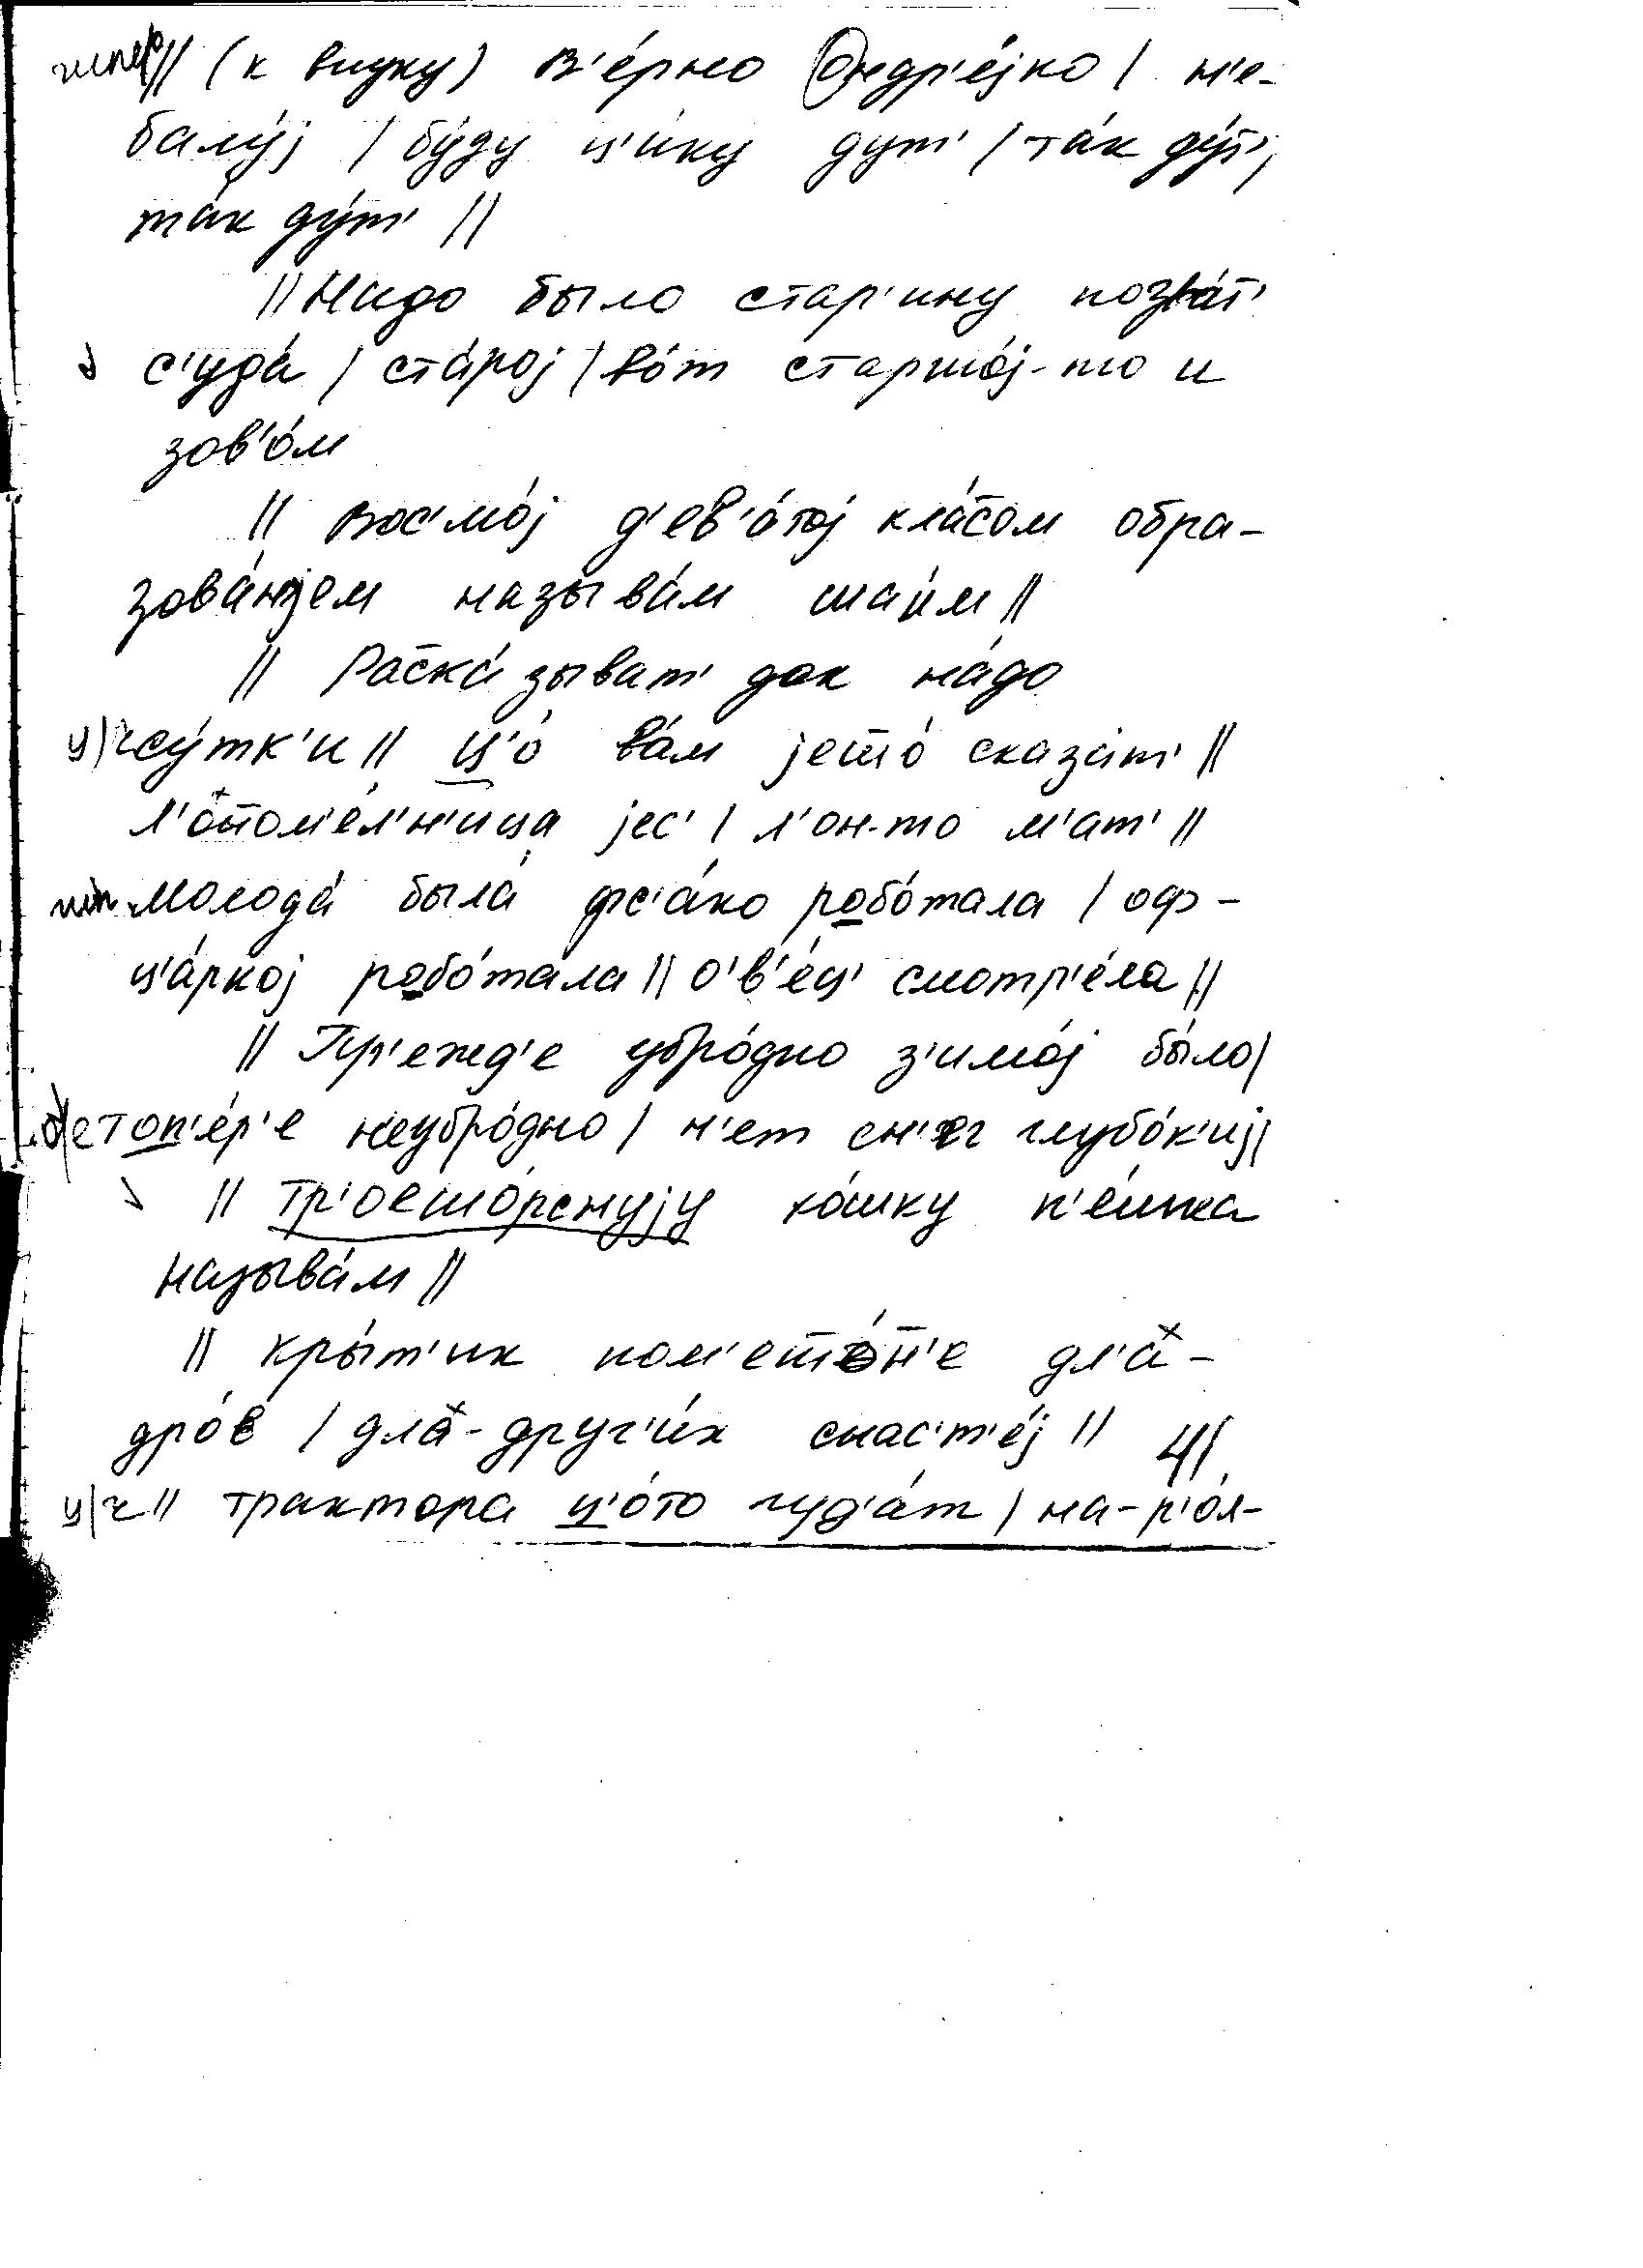 // (к внуку) в'е́рно Ондр'е́јко / н'е-
балу́ј / бу́ду ц'и́ку дут' / та́к ду́т',
та́к ду́т' //
// Надо было стар'ину позва́т'
с'уда́ / ста́рој / во́т старшо́ј-то и
зов'о́м
// Вос'мо́ј д'ев'а́тој кла́с̄ом обра-
зова́нјем называ́м
// Рас̄ка́зыват' дак на́до
ц/ч су́тк'и // ц'о́ ва́м јешо́ сказа́т' //
јес' / л'он-то м'ат' //
Молода́ была́ фс'а́ко робо́тала / оф-
ц'а́ркој робо́тала // о́в'е́ц' смотр'е́ла //
// Пр'ежд'е убро́дно з'имо́ј бы́ло /
топ'е́р'е неубро́дно / н'ет сн'ег глубо́к'иј /
// называ́м //
// Кры́т'ик дл'а-
дро́в / дл'а-друг'и́х снас'т'е́ј // 41
ц/ч // трактора ц'о́то гуд'а́т / на-р'о́л-